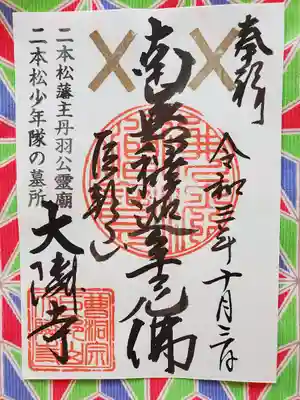 奉拝
令和三年十月三日
南無釋迦牟尼佛
二本松藩主丹羽公霊廟
二本松少年隊の墓所
大隣寺
曹洞宗